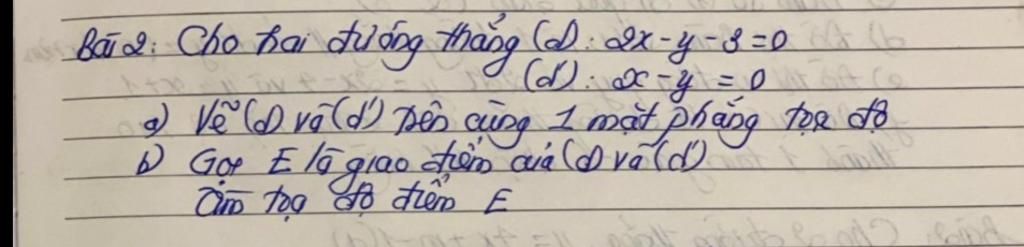 Bài 2: Cho hai đường thẳng (d): 2x-y-3=0
(d'): x-y=0
a) Vẽ (d) và (d') trên cùng 1 mặt phẳng tọa độ
b) Gọi E là giao điểm của (d) và (d')
Tìm tọa độ điểm E